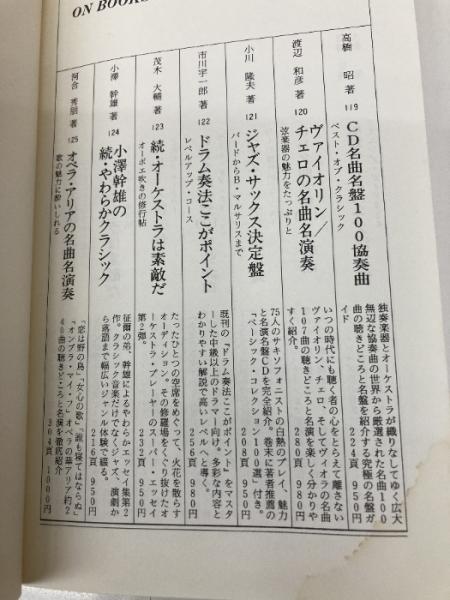 ON BOOKS
高駒 昭 著 119
CD名曲名盤100協奏曲
ベスト・オブ・クラシック
独奏楽器とオーケストラが織りなしてゆく広大
無辺な協奏曲の世界から厳選された名曲100
曲の聴きどころと名盤を紹介する究極の名盤ガ
イド
224頁 950円
渡辺 和彦 著 120
ヴァイオリン/
チェロの名曲名演奏
弦楽器の魅力をたっぷりと
いつの時代にも聴く者の心をとらえて離さない
ヴァイオリン、チェロ、そしてヴィオラの名曲
107曲の聴きどころと名演を楽しく分かりや
すく紹介。
280頁 980円
小川 隆夫 著 121
ジャズ・サックス決定盤
バードからB・マルサリスまで
75人のサキソフォニストの白熱のプレイ、魅力
と名演名盤CDを完全紹介。巻末に著者推薦の
「ベーシック・コレクション100選」付き。
208頁 950円
市川宇一郎 著 122
ドラム奏法ここがポイント
レベルアップ・コース
既刊の『ドラム奏法ここがポイント』をマスタ
ーした中級以上のドラマー向け。多彩な内容と
わかりやすい解説で高いレベルへと導く。
256頁 980円
茂木 大輔 著 123
続・オーケストラは素敵だ
オーボエ吹きの修行帖
たったひとつの空席をめぐって、火花を散らす
オーディション。その修羅場をくぐり抜けたオ
ーケストラ・プレーヤーのスーパー・エッセイ
第2弾。
232頁 950円
小澤 幹雄 著 124
小澤幹雄の
続・やわらかクラシック
征爾の弟、幹雄によるやわらかエッセイ集第2
作。クラシック音楽だけでなくジャズ、演劇か
ら落語まで幅広いジャンル体験で綴る。
216頁 950円
河合 秀朋 著 125
オペラ・アリアの名曲名演奏
歌の魅力に酔いしれる
「恋は野の鳥」「女心の歌」「誰も寝てはならぬ」
「オンブラ・マイ・フ」オペラの華アリア約2
40曲の聴きどころと名演を徹底紹介
304頁 1000円